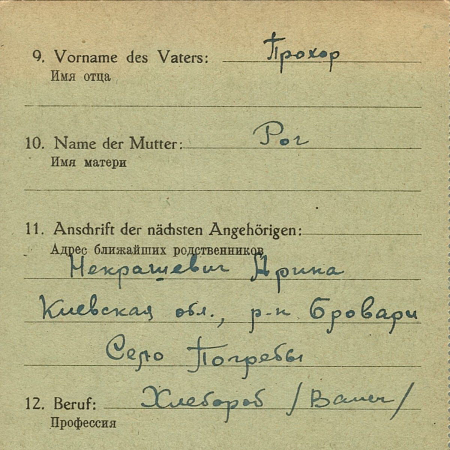 9. Vorname des Vaters: Прохор
Имя отца
10. Name der Mutter: Рог
Имя матери
11. Anschrift der nächsten Angehörigen:
Адрес ближайших родственников
Некрашевич Арина
Киевская обл., р-н Бровари
Село Погребы
12. Beruf: Хлебороб /Bauer/
Профессия